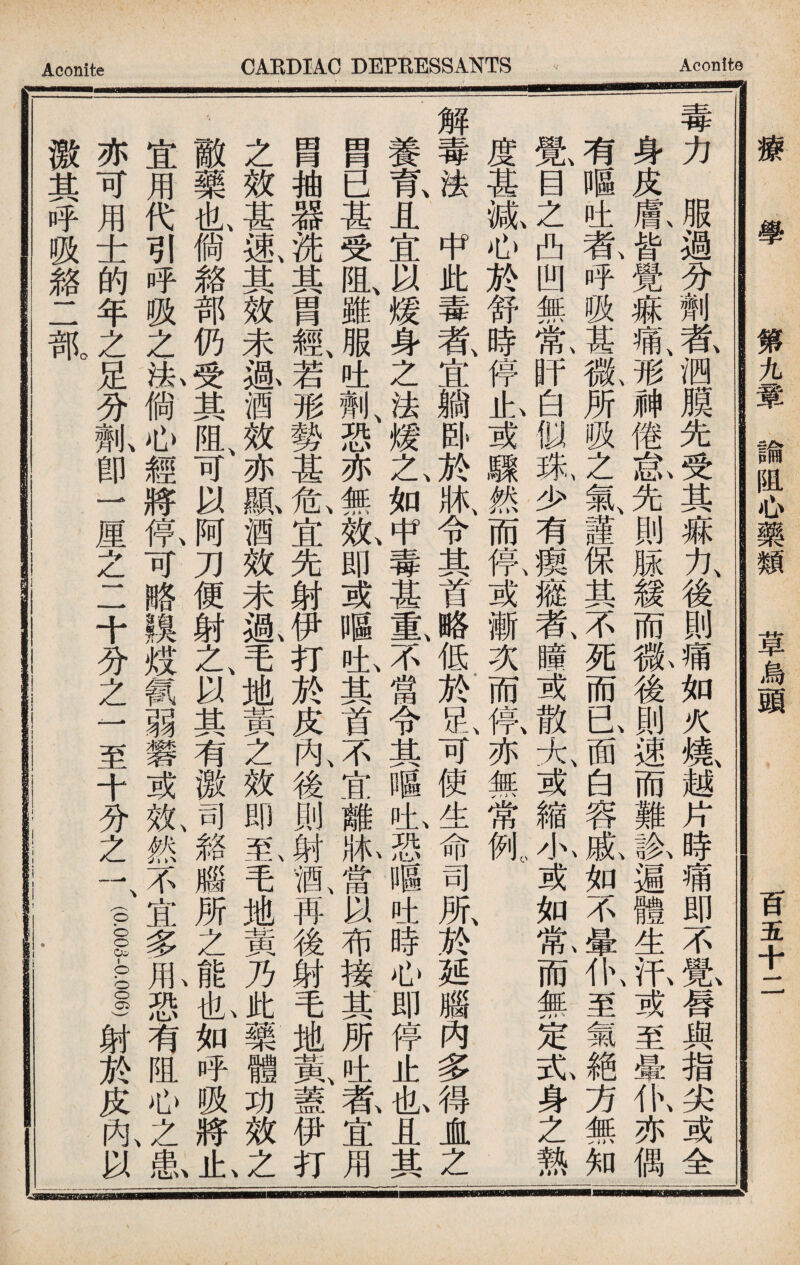 Aconite CARDIAC DEPRESSANTS Aconite
療學 第九章 論阻心藥類 草烏頭 百五十二
毒力 服過分劑者、泗膜先受其麻力、後則痛如火燒、越片時痛即不覺、唇與指尖或全
身皮膚、皆覺麻痛、形神倦怠、先則脉緩而微、後則速而難診、遍體生汗、或至暈仆、亦偶
有嘔吐者、呼吸甚微、所吸之氣、謹保其不死而已、面白容戚、如不暈仆、至氣絕方無知
覺、目之凸凹無常、盰白似珠、少有瘈瘲者、瞳或散大、或縮小、或如常、而無定式、身之熱
度甚減、心於舒時停止、或驟然而停、或漸次而停、亦無常例。
解毒法 中此毒者、宜躺臥於牀、令其首略低於足、可使生命司所、於延腦内多得血之
養育、且宜以煖身之法煖之、如中毒甚重、不當令其嘔吐、恐嘔吐時心即停止也、且其
胃已甚受阻、雖服吐劑、恐亦無效、即或嘔吐、其首不宜離牀、當以布接其所吐者、宜用
胃抽器洗其胃經、若形勢甚危、宜先射伊打於皮内、後則射酒、再後射毛地黃、蓋伊打
之效甚速、其效未過、酒效亦顯、酒效未過、毛地黃之效即至、毛地黃乃此藥體功效之
敵藥也、倘絡部仍受其阻、可以阿刀便射之、以其有激司絡腦所之能也、如呼吸將止、
宜用代引呼吸之法、倘心經將停、可略齅煫氤弱礬或效、然不宜多用、恐有阻心之患、
亦可用士的年之足分劑、即一厘之二十分之一至十分之一、(0·003-0·006)射於皮内、以
激其呼吸絡二部。